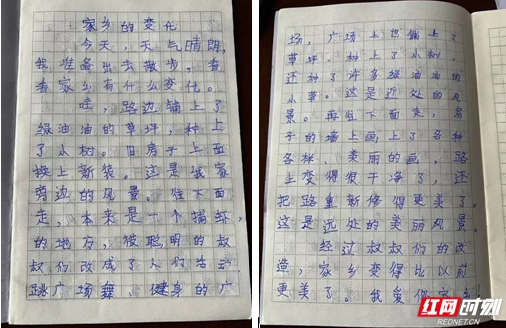 家乡的变化
今天，天气晴朗，
我准备出去散步，看
看家乡有什么变化。
哇，路边铺上了
绿油油的草坪，种上
了小树。旧房子上面
换上新装。这是我家
旁边的风景。往下面
走，本来是一个捕虾
的地方，被聪明的叔
叔们改成了人们活动、
跳广场舞、健身的广
场，广场上也铺上了
草坪、种上了小树，
还种了许多绿油油的
小草。这是近处的风
景。再往下面走，房
子的墙上画上了各种
各样、美丽的画，路
上变得很干净了，还
把路重新修得更美了。
这是远处的美丽风景。
经过叔叔们的改
造，家乡变得比以前
更美了。我爱你家乡！
红网时刻
REDNET.CN